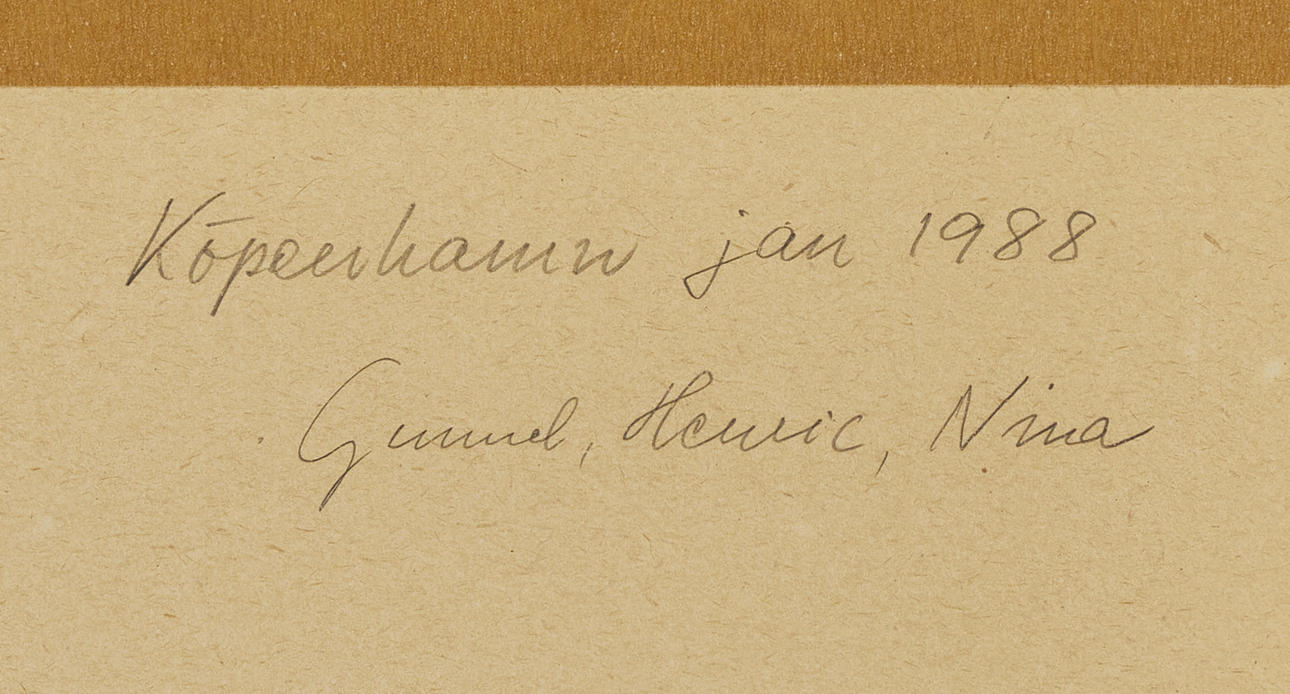 Köpenhamn jan 1988
Gunnel, Henric, Nina